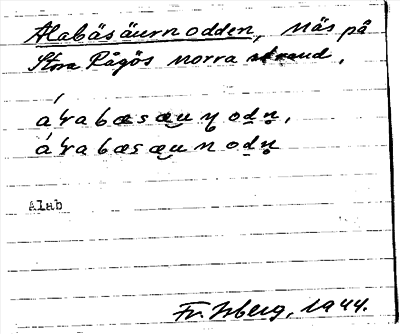 Alabäsäurnodden, näs på
Stora Rågös norra strand.
áʼrabæsæu̯ƞ od̯n̥,
áʼrabæsæu̯n od̯n̥
Alab
Fr. Isberg, 1944.